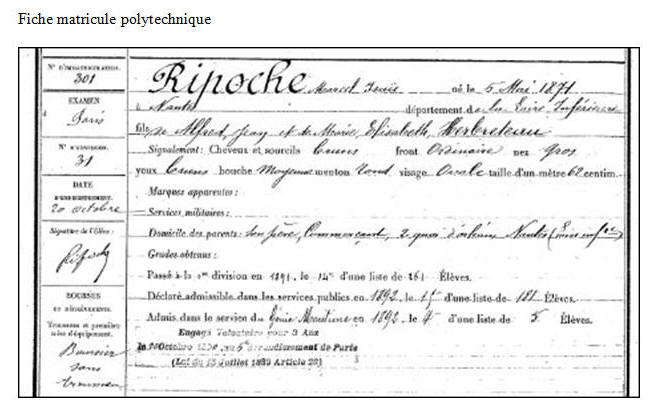 Fiche matricule polytechnique
N° D'IMMATRICULATION.
301
EXAMEN
à Paris
31
DATE
20 octobre
Signature de l'Élève :
Ripoche
BOURSES
Trousseau et première
mise d'équipement.
Boursier
sans
trousseau
Ripoche Marcel Louis né le 5 Mai 1871
à Nantes département de la Loire Inférieure
fils de Alfred, Jean et de Marie, Elisabeth, Herbreteau
Signalement: Cheveux et sourcils bruns front Ordinaire nez gros
yeux bruns bouche Moyenne menton rond visage Ovale taille d'un mètre 62 centim.
Marques apparentes :
Services militaires :
Domicile des parents: son père, Commerçant, 2 quai d'orléans Nantes (Loire infre)
Grades obtenus :
Passé à la 1re division en 1891, le 14e d'une liste de 261 Élèves.
Déclaré admissible dans les services publics en 1892, le d'une liste de Élèves.
Admis dans le service du Génie Maritime en 1892, le 4e d'une liste de 5 Élèves.
Engagé Volontaire pour 3 Ans
le Octobre au 5e arrondissement de Paris
(Loi du 15 Juillet 1889 Article 28)